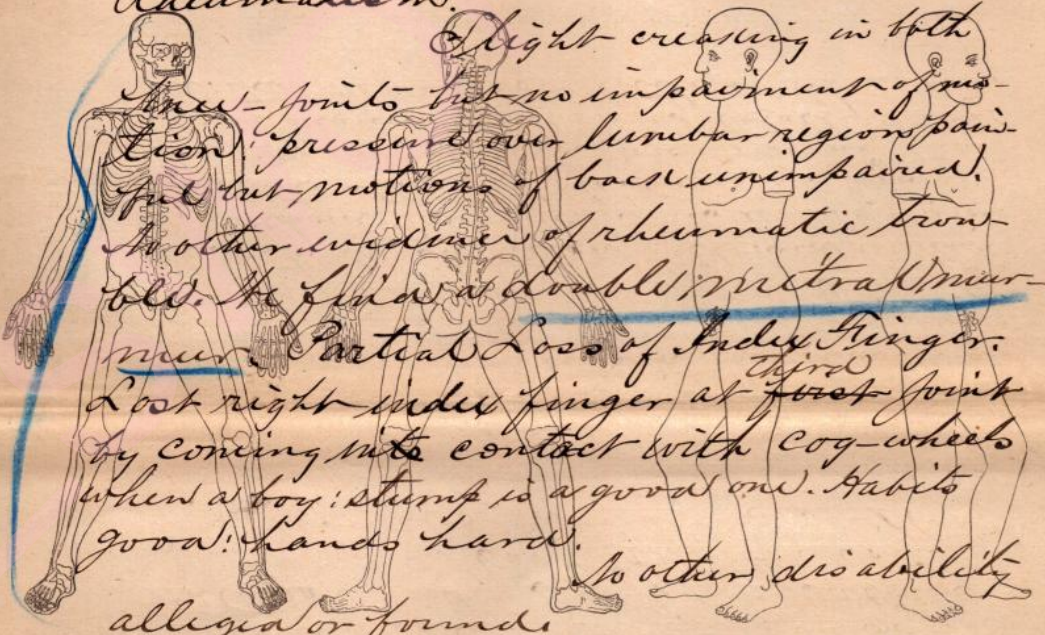 Rheumatism.
Slight creaking in both
knee-joints but no impairment of mo-
tion: pressure over lumbar region pain-
ful but motions of back unimpaired.
No other evidence of rheumatic trou-
ble. We find a double mitral mur-
mur. Partial Loss of Index Finger.
third
Lost right index finger at first joint
by coming into contact with cog-wheels
when a boy: stump is a good one. Habits
good: hands hard.
No other disability
alleged or found.